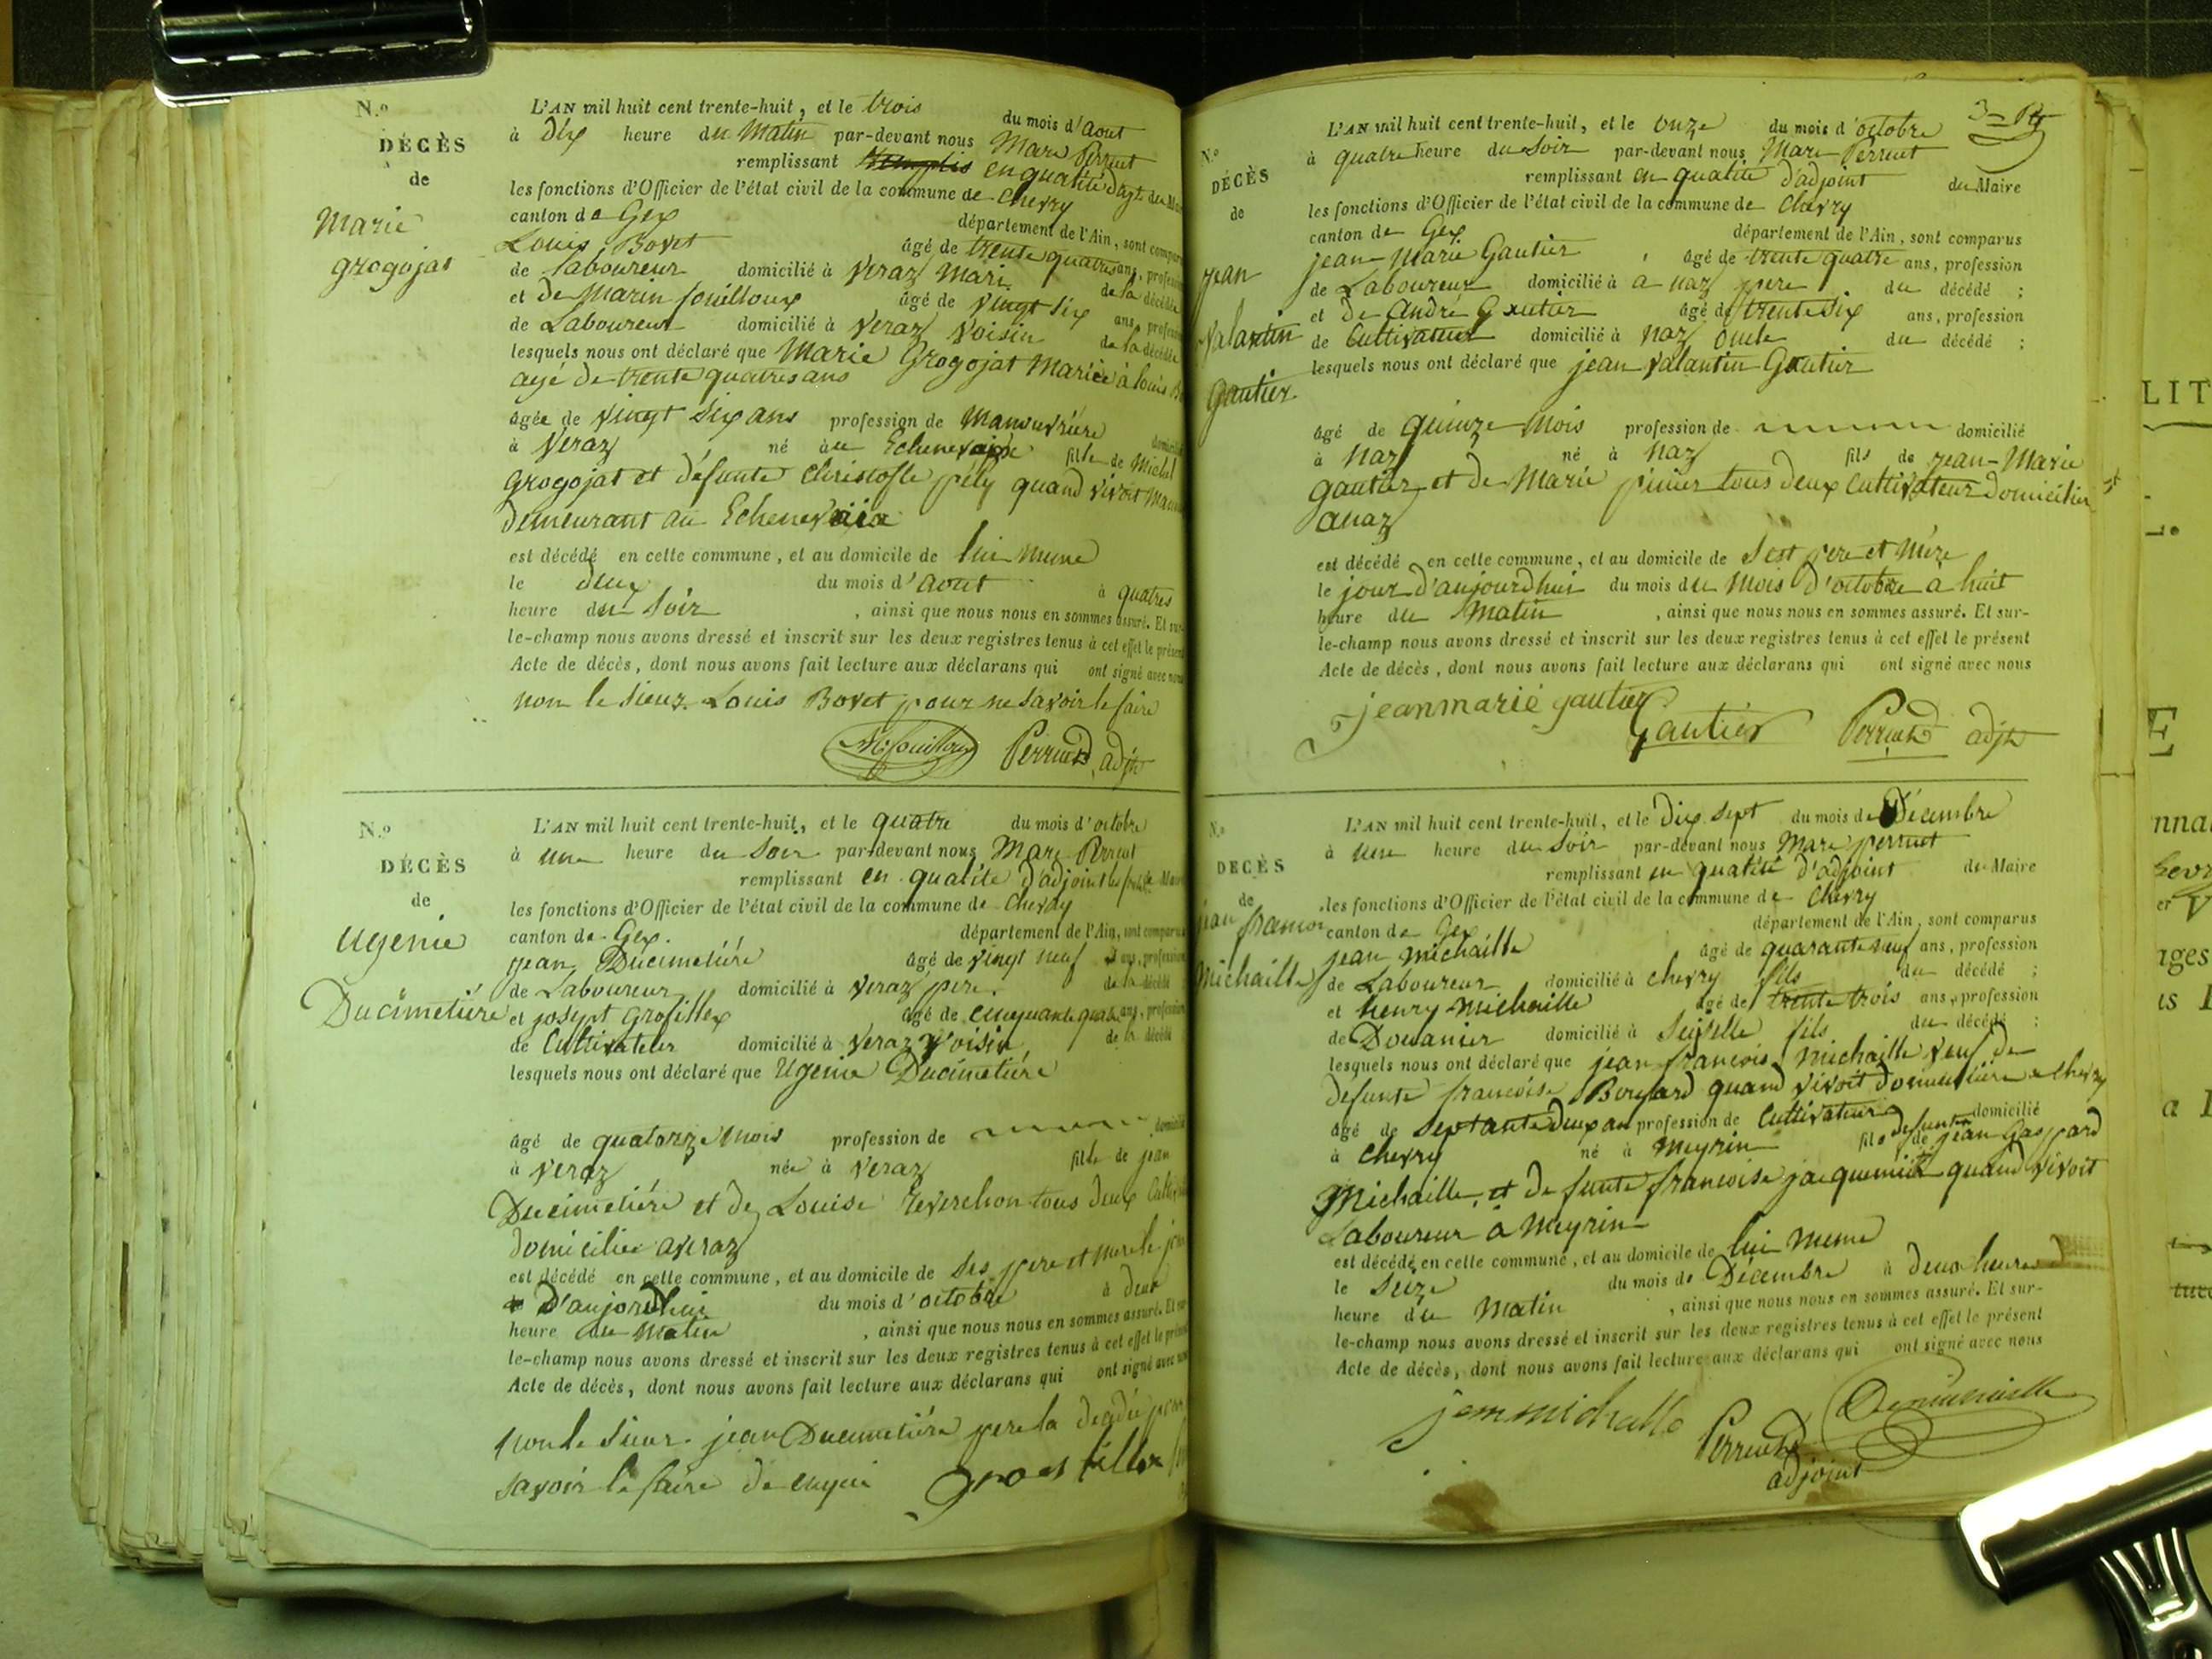 N.o
DÉCÈS
de
Marie
Grogojat
L'AN mil huit cent trente-huit, et le trois du mois d'Aout
à dix heure du Matin par-devant nous Marc Perruet
remplissant en qualité d'agt du
les fonctions d'Officier de l'état civil de la commune de Chevry
canton de Gex département de l'Ain, sont comparus
Louis Bovet âgé de trente quatres ans, profession
de Laboureur domicilié à Veraz Mari de la décédée
et de Marin fouilloux âgé de vingt six ans, profession
de Laboureur domicilié à Veraz Voisin de la décédée
lesquels nous ont déclaré que Marie Grogojat Mariée à louis
agé de trente quatres ans
âgée de vingt six ans profession de Manouvrière
à Veraz né au Echenevaix fille de Michel
Grogojat et défunte Christofle pély quand vivoit
demeurant au Echenevaix
est décédé en cette commune, et au domicile de lui mune
le deux du mois d'Aout à quatres
heure du Soir , ainsi que nous nous en sommes assuré. Et sur-
le-champ nous avons dressé et inscrit sur les deux registres tenus à cet effet le présent
Acte de décès, dont nous avons fait lecture aux déclarans qui ont signé avec nous
non le sieur Louis Bovet pour ne savoir le faire
Perruet adjt
N.o
DÉCÈS
de
Ugenie
Ducimetiére
L'AN mil huit cent trente-huit, et le quatre du mois d'octobre
à une heure du Soir par-devant nous Marc Perruet
remplissant en qualité d'adjoint
les fonctions d'Officier de l'état civil de la commune de Chevry
canton de Gex. département de l'Ain, sont comparus
jean Ducimetiére âgé de vingt neuf ans, profession
de Laboureur domicilié à Veraz pere de la décédé
et josept Grosfillex âgé de cinquante quatre ans, profession
de Cultivateur domicilié à Veraz Voisin de la décédé
lesquels nous ont déclaré que Ugenie Ducimetiére
âgé de quatorze Mois profession de
à Veraz née à Veraz fille de jean
Ducimetiére et de Louise reverchon tous deux
domicilié a veraz
est décédé en cette commune, et au domicile de ses pere et mere le
D'aujordhui du mois d'octobre à deux
heure du Matin , ainsi que nous nous en sommes assuré. Et sur-
le-champ nous avons dressé et inscrit sur les deux registres tenus à cet effet le présent
Acte de décès, dont nous avons fait lecture aux déclarans qui ont signé avec nous
non le Sieur jean Ducimetiére pere la
savoir le faire de enquis
N.o
DÉCÈS
de
jean
Valantin
Gautier
L'AN mil huit cent trente-huit, et le onze du mois d'octobre
à quatre heure du Soir par-devant nous Marc Perruet
remplissant en qualité d'adjoint du Maire
les fonctions d'Officier de l'état civil de la commune de Chevry
canton de Gex département de l'Ain, sont comparus
jean Marie Gautier âgé de trente quatre ans, profession
de Laboureur domicilié à a naz pere du décédé ;
et de André Gautier âgé de trente six ans, profession
de Cultivateur domicilié à Naz oncle du décédé ;
lesquels nous ont déclaré que jean Valantin Gautier
âgé de quinze Mois profession de domicilié
à Naz né à Naz fils de jean-Marie
Gautier et de Marie tous deux Cultivateur domicilier
anaz
est décédé en cette commune, et au domicile de Sest pere et mére
le jour d'aujourdhui du mois du Mois d'octobre à huit
heure du Matin , ainsi que nous nous en sommes assuré. Et sur-
le-champ nous avons dressé et inscrit sur les deux registres tenus à cet effet le présent
Acte de décès, dont nous avons fait lecture aux déclarans qui ont signé avec nous
jeanmarie gautier
Gautier Perruet adjt
N.o
DÉCÈS
de
jean francois
Michaille
L'AN mil huit cent trente-huit, et le dix sept du mois de Décembre
à une heure du Soir par-devant nous Marc perruet
remplissant en qualité d'adjoint du Maire
les fonctions d'Officier de l'état civil de la commune de Chevry
canton de Gex département de l'Ain, sont comparus
jean Michaille âgé de quarante neuf ans, profession
de Laboureur domicilié à Chevry fils du décédé ;
et henry Michaille âgé de trente trois ans, profession
de Douanier domicilié à Seiselle fils du décédé ;
lesquels nous ont déclaré que jean francois Michaille veuf de
defunte francoise quand vivoit a Chevry
âgé de Septante deux an profession de Cultivateur domicilié
à Chevry né à Meyrin fils de defunt jean Gaspard
Michaille et defunte francoise jaquemier quand vivoit
Laboureur à Meyrin
est décédé en cette commune, et au domicile de lui meme
le Seize du mois de Décembre à deux heures
heure du Matin , ainsi que nous nous en sommes assuré. Et sur-
le-champ nous avons dressé et inscrit sur les deux registres tenus à cet effet le présent
Acte de décès, dont nous avons fait lecture aux déclarans qui ont signé avec nous
jean michaille
Perruet
adjoint
LIT
E